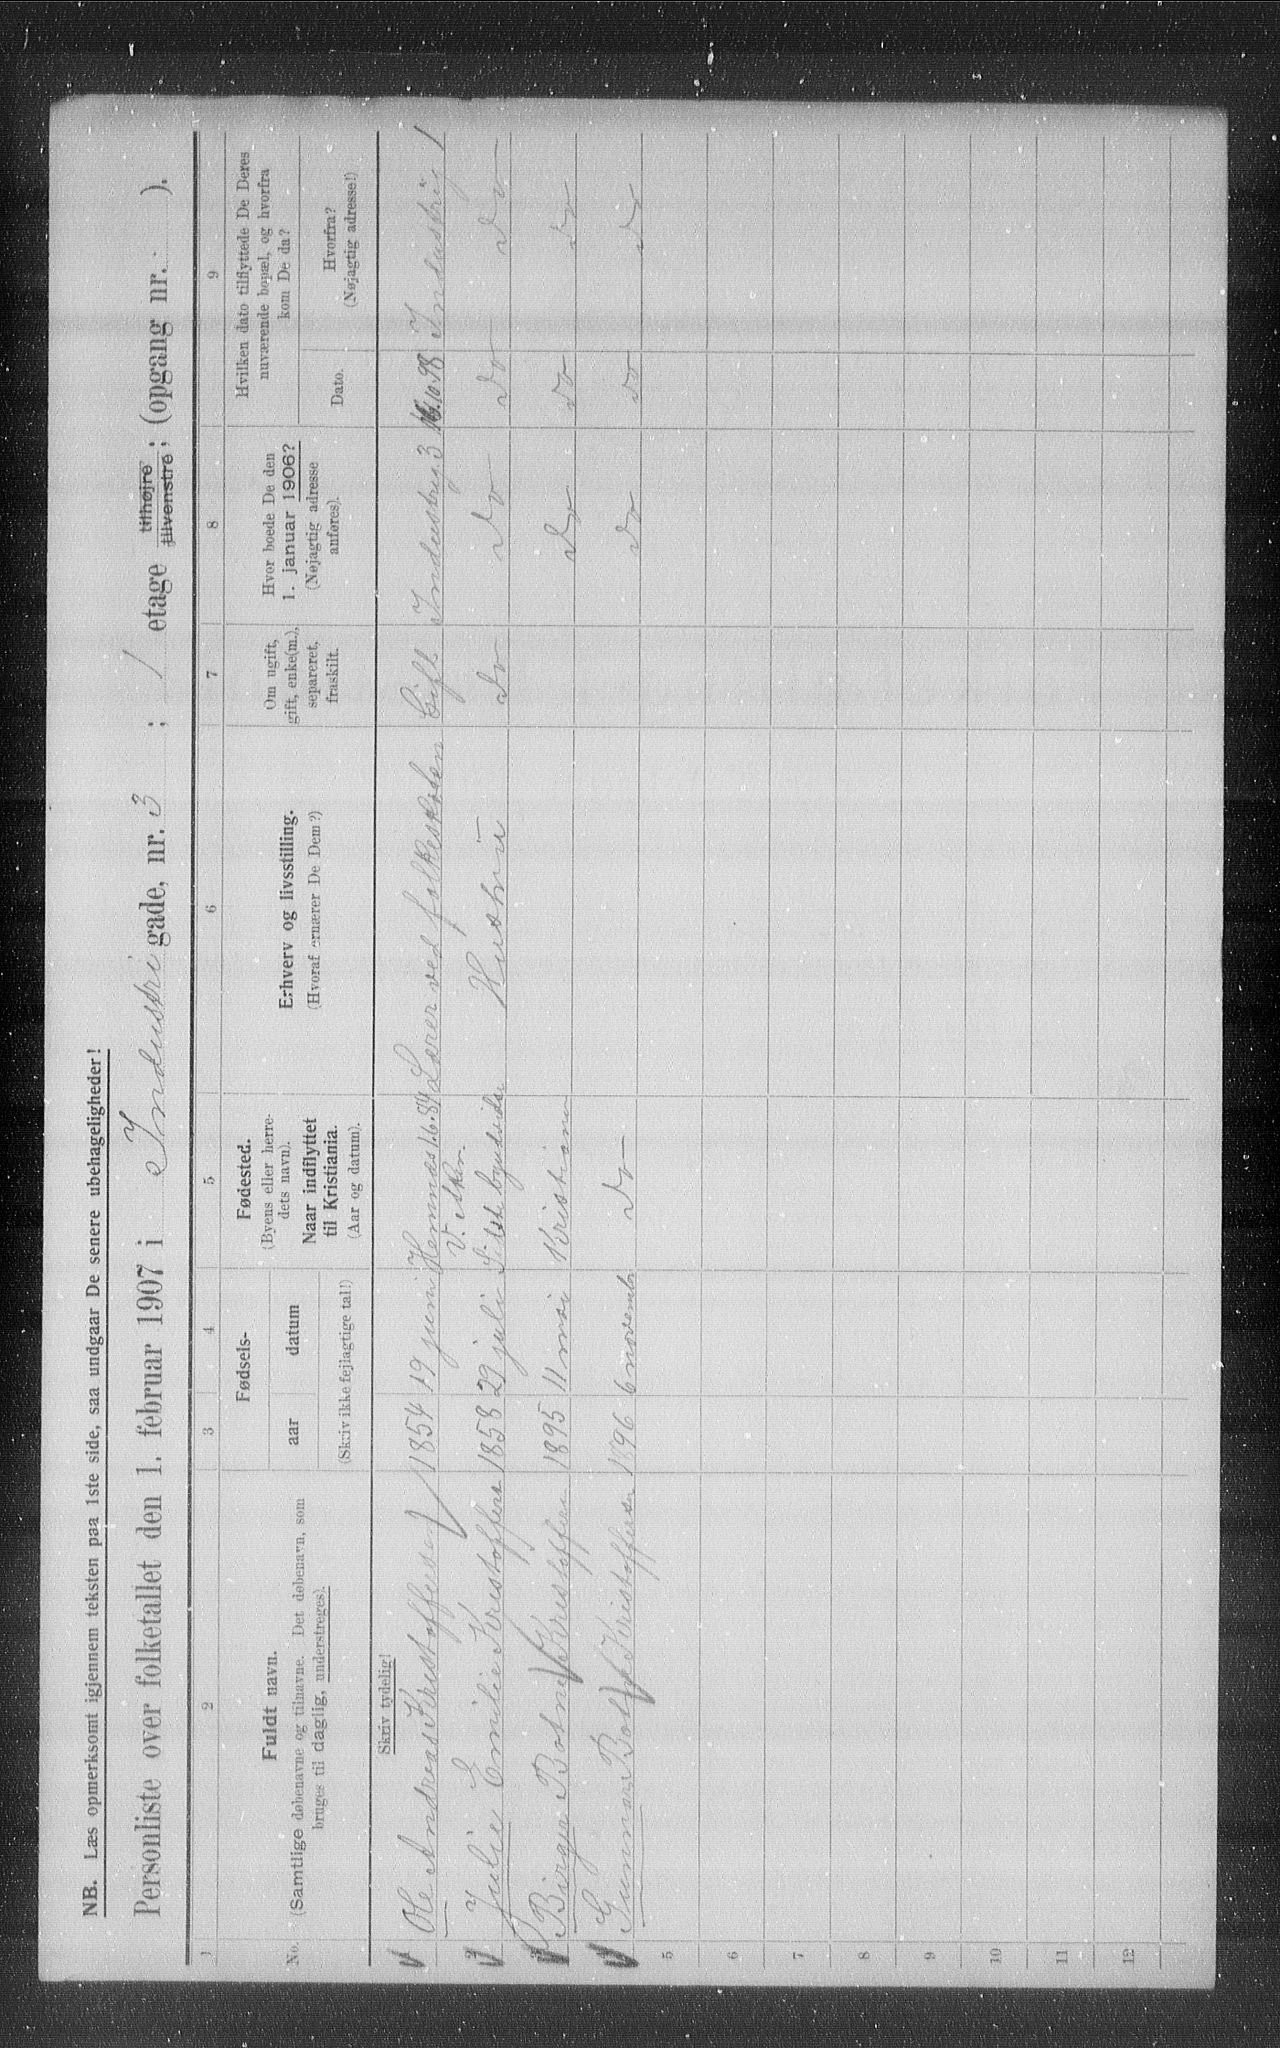 NB. Læs opmerksomt igjennem teksten paa 1ste side, saa undgaar De senere ubehageligheder!
Personliste over folketallet den 1. februar 1907 i Industrigade, nr. 3 ; 1 etage tilhøjre tilvenstre; (opgang nr. ).
1 2 3 4 5 6 7 8 9
No. Fuldt navn. (Samtlige døbenavne og tilnavne. Det døbenavn, som bruges til daglig, understreges).
Fødsels- aar datum (Skriv ikke fejlagtige tal!)
Fødested. (Byens eller herredets navn). Naar indflyttet til Kristiania. (Aar og datum).
Erhverv og livsstilling. (Hvoraf ernærer De Dem?)
Om ugift, gift, enke(m.), separeret, fraskilt.
Hvor boede De den 1. januar 1906? (Nøjagtig adresse anføres).
Hvilken dato tilflyttede De Deres nuværende bopæl, og hvorfra kom De da?
Dato. Hvorfra? (Nøjagtig adresse!)
Skriv tydelig!
Ole Andreas Kristoffersen 1854 19 juni Hemnæs 1.6.84 Lærer ved folkeskolen Gift Industrig. 3 10.98 Industrig 1
V. Aker.
2 Julie Emilie Kristoffers 1858 29 juli Hustru do do do do
3 Birger Kristoffers 1895 11 mai Kristiania do do do
4 Gunnar Kristoffersen 1896 6 novembr do do do do
5
6
7
8
9
10
11
12